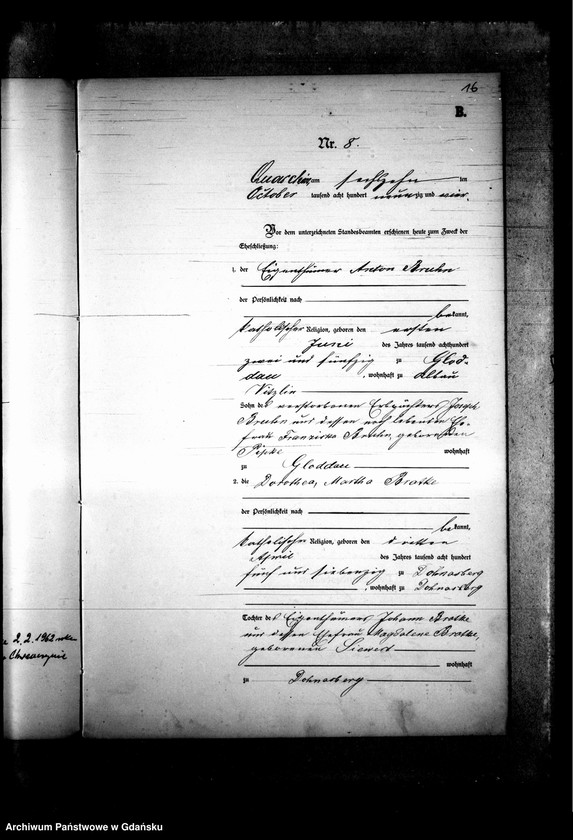 16
B.
Nr. 8.
Quaschin am sechzehn ten
October tausend acht hundert neunzig und vier.
Vor dem unterzeichneten Standesbeamten erschienen heute zum Zweck der
Eheschließung:
1. der Eigenthümer Anton Bruhn
der Persönlichkeit nach
bekannt,
katholischer Religion, geboren den ersten
Juni des Jahres tausend achthundert
zwei und fünfzig zu Glod-
dau, wohnhaft zu
Viszlin
Sohn des verstorbenen Erbpächters Joseph
Bruhn und dessen noch lebenden Ehe-
frau Franziska Bruhn, geborenen
Pipke wohnhaft
zu Gloddau
2. die Dorothea, Martha Bratke
der Persönlichkeit nach
bekannt,
katholischer Religion, geboren den dritten
April des Jahres tausend acht hundert
fünf und siebenzig zu Dohnasberg
, wohnhaft zu Dohnasberg
Tochter des Eigenthümers Johann Bratke
und dessen Ehefrau Magdalena Bratke,
geborenen Siewert
wohnhaft
zu Dohnasberg
2. 2. 1962
Archiwum Państwowe w Gdańsku